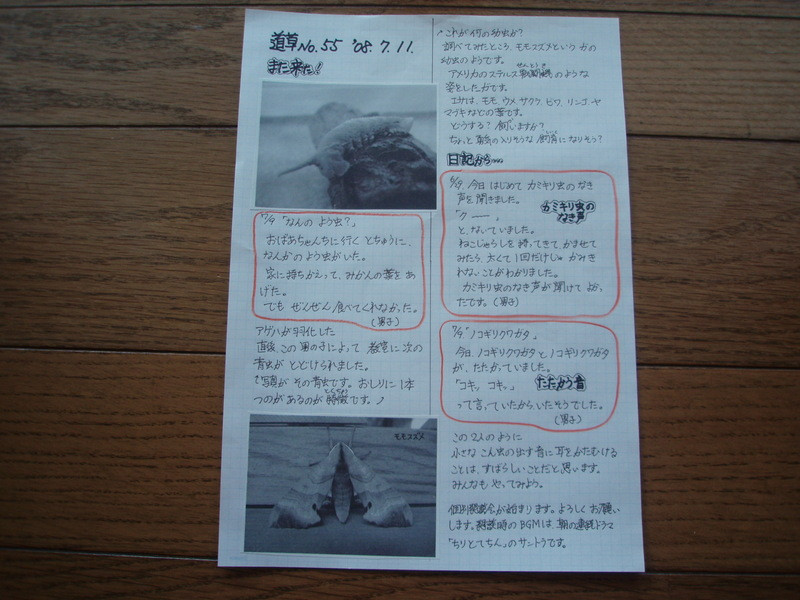 道草 No.55 '08.7.11.
また来た!
7/9「なんの よう虫?」
おばあちゃんちに行く とちゅうに、
なんかの よう虫がいた。
家に持ちかえって、みかんの葉を あ
げた。
でも ぜんぜん 食べてくれなかった。
(男子)
アゲハが羽化した
直後、この男の子によって 教室に次の
青虫が とどけられました。
写真が その青虫です。おしりに1本
つのが あるのが 特徴です。
とくちょう
モモスズメ
これが何の幼虫か?
調べてみたところ、モモスズメという ガの
幼虫のようです。
アメリカのステルス戦闘機のような
せんとうき
姿をしたガです。
エサは、モモ、ウメ、サクラ、ビワ、リンゴ、ヤ
マブキなどの葉です。
どうする? 飼いますか?
ちょっと 勇気の入りそうな 飼育に なりそう?
日記から…
6/19、今日 はじめて カミキリ虫の なき
声を聞きました。
カミキリ虫の
なき声
「クーー。」
と、ないていました。
ねこじゃらしを 持ってきて、かませて
みたら、太くて 1回だけじゃ かみき
れない ことが わかりました。
カミキリ虫の なき声が 聞けて よかっ
たです。(男子)
7/9「ノコギリクワガタ」
今日、ノコギリクワガタと ノコギリクワガタ
が、たたかっていました。
「コキッ、コキッ。」
たたかう音
って言っていたから、いたそうでした。
(男子)
この2人のように
小さな こん虫の出す音に 耳を かたむける
ことは、すばらしい ことだと 思います。
みんなも やってみよう。
個別懇談会が始まります。よろしく お願い
します。懇談時のBGMは、朝の連続ドラマ
「ちりとてちん」のサントラです。